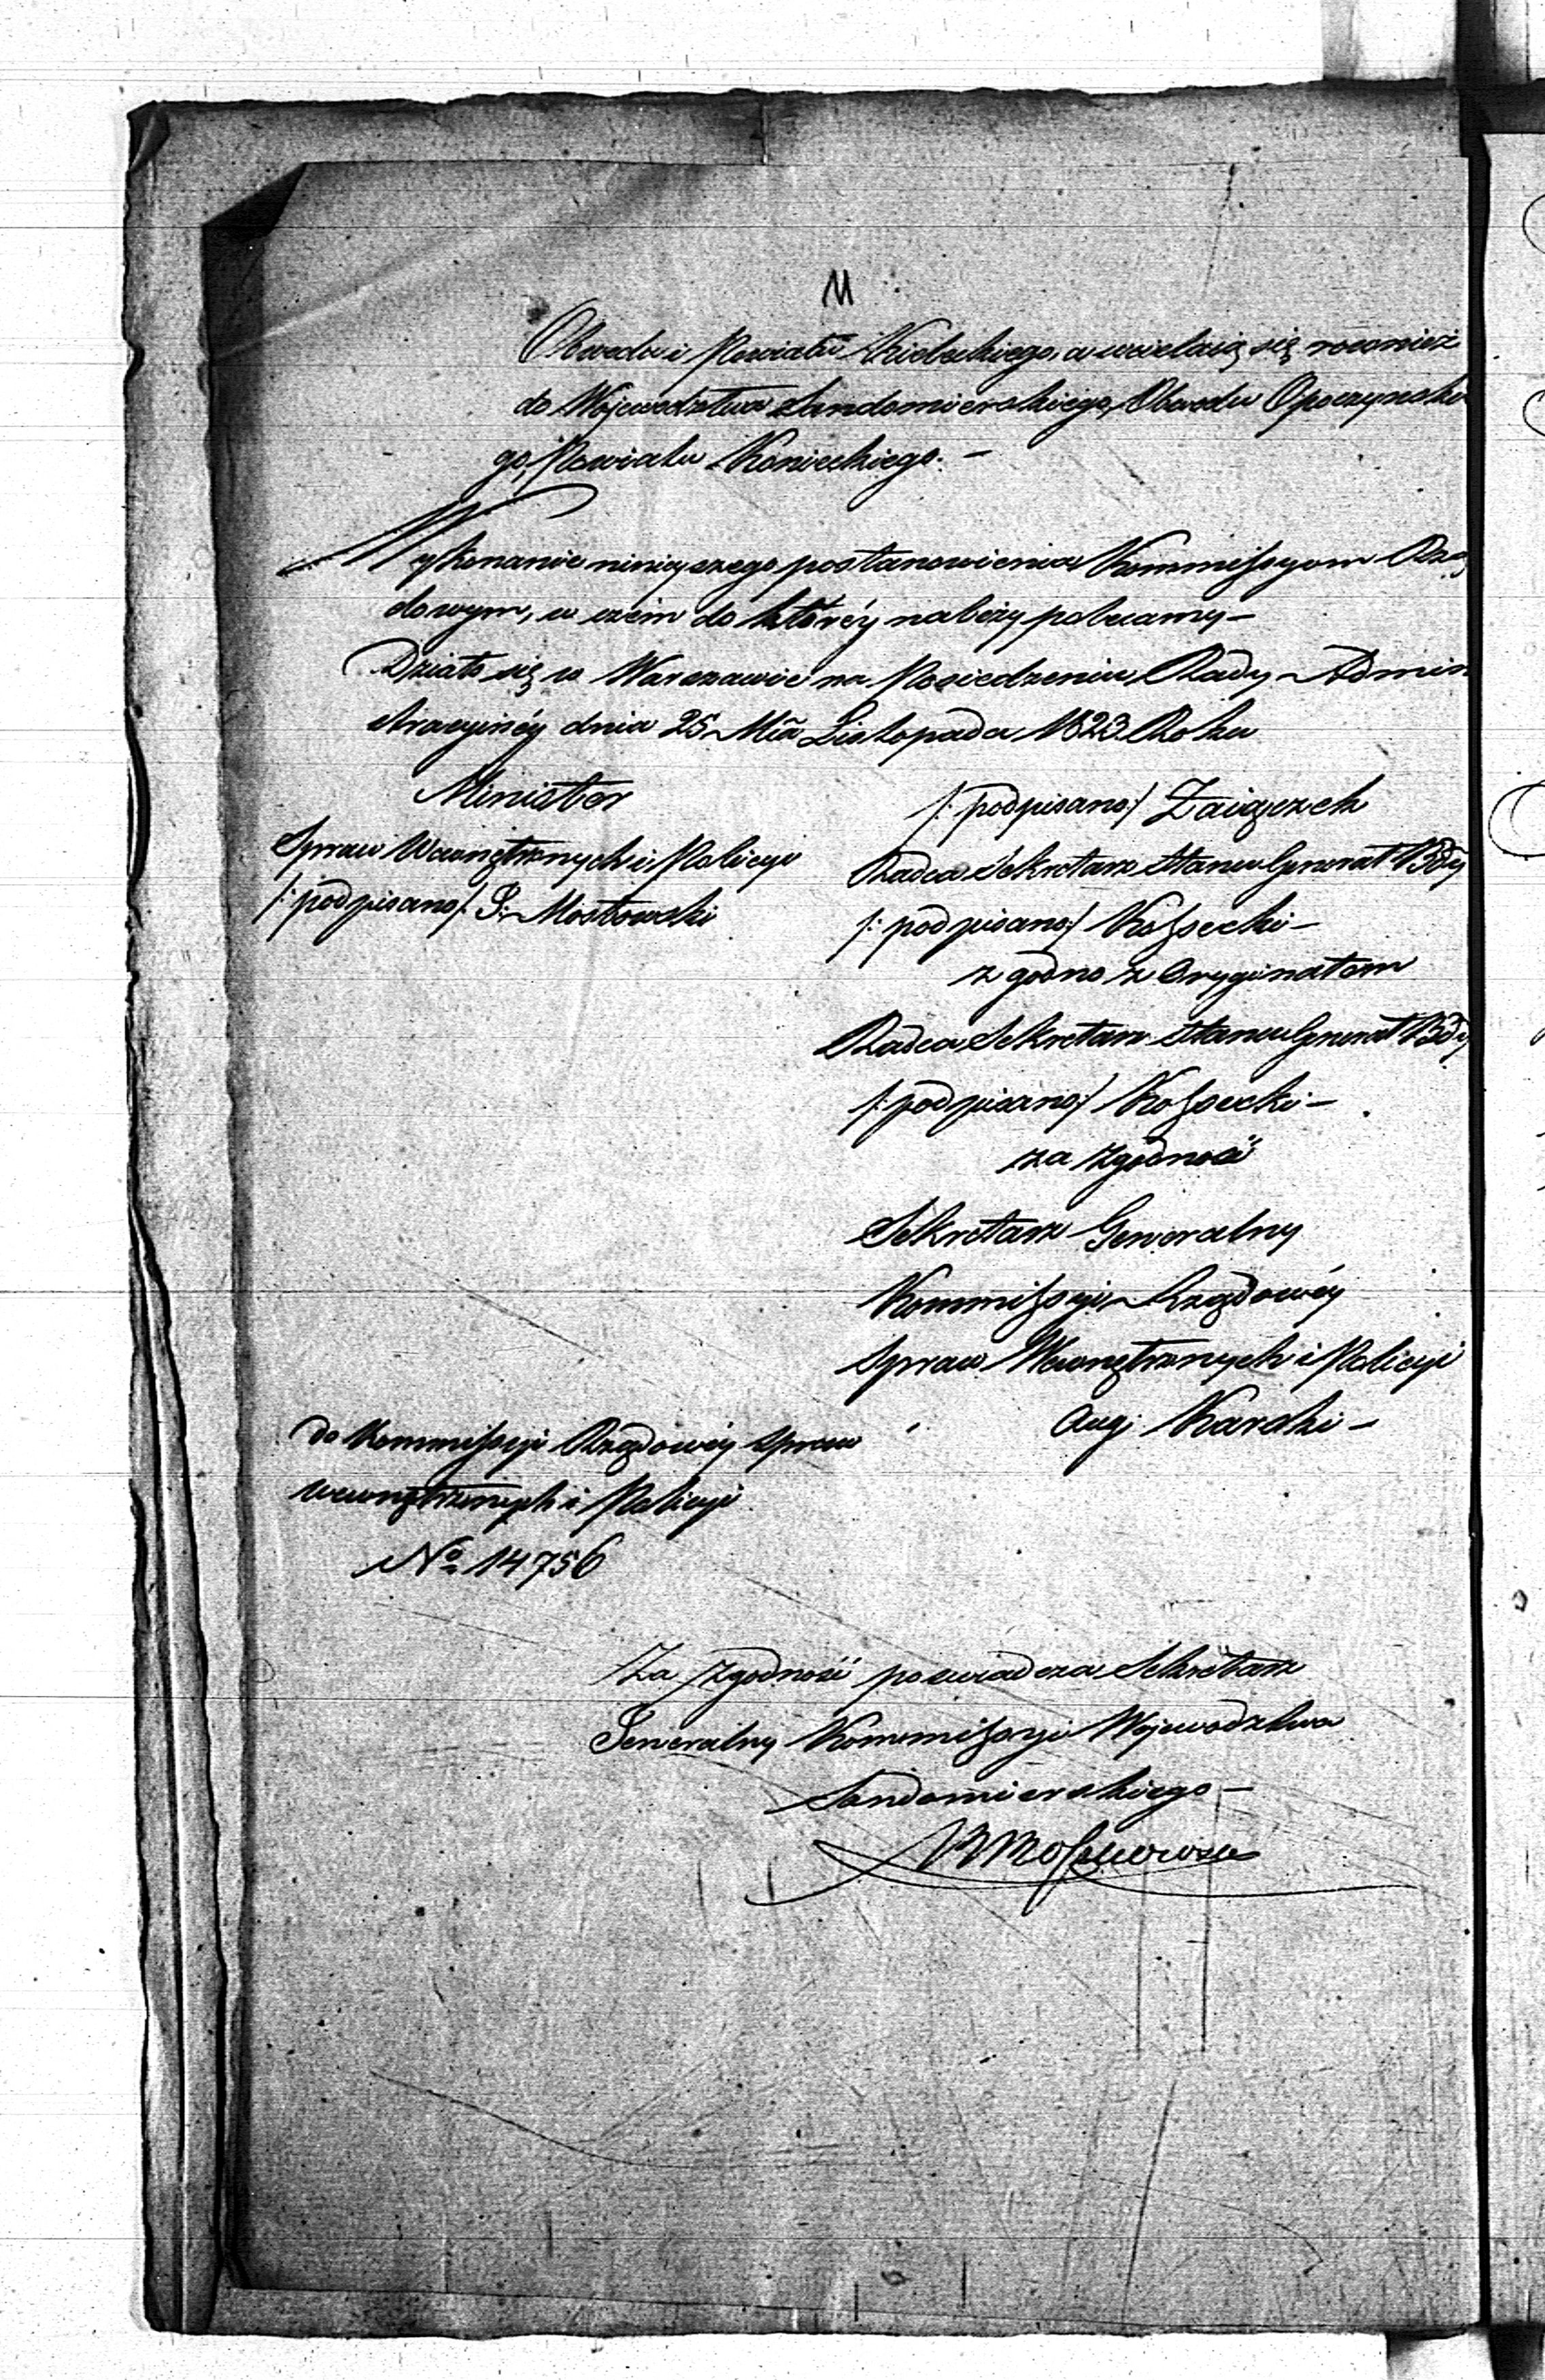 11
Obwodu i Powiatu Kieleckiego, a wcielaią się rownież
do Wojewodztwa Sandomierskiego, Obwodu Opoczynskie
go, Powiatu Koneckiego. –
Wykonanie ninieyszego postanowienia Kommissyom Rzą
dowym, w czém do któréy należy polecamy –
Działo się w Warszawie na Posiedzeniu Rady Admini
stracyinéy dnia 25 Mca Listopada 1823 Roku
Minister
Spraw Wewnętrznych i Policyi
/: podpisano /: T. Mostowski
/: podpisano :/ Zaiączek
Radca Sekretarz Stanu Generał Bdy
/: podpisano :/ Kossecki –
zgodno z Oryginałem
Radca Sekretarz Stanu Generał Bdy
/: podpisano :/ Kossecki –
za zgodność
Sekretarz Generalny
Kommissyi Rządowéy
Spraw Wewnętrznych i Policyi
Aug: Karski –
do Kommissyi Rządowéy Spraw
wewnętrznych i Policyi
No 14756
Za zgodność poswiadcza Sekretarz
Generalny Kommissyi Wojewodztwa
Sandomierskiego –